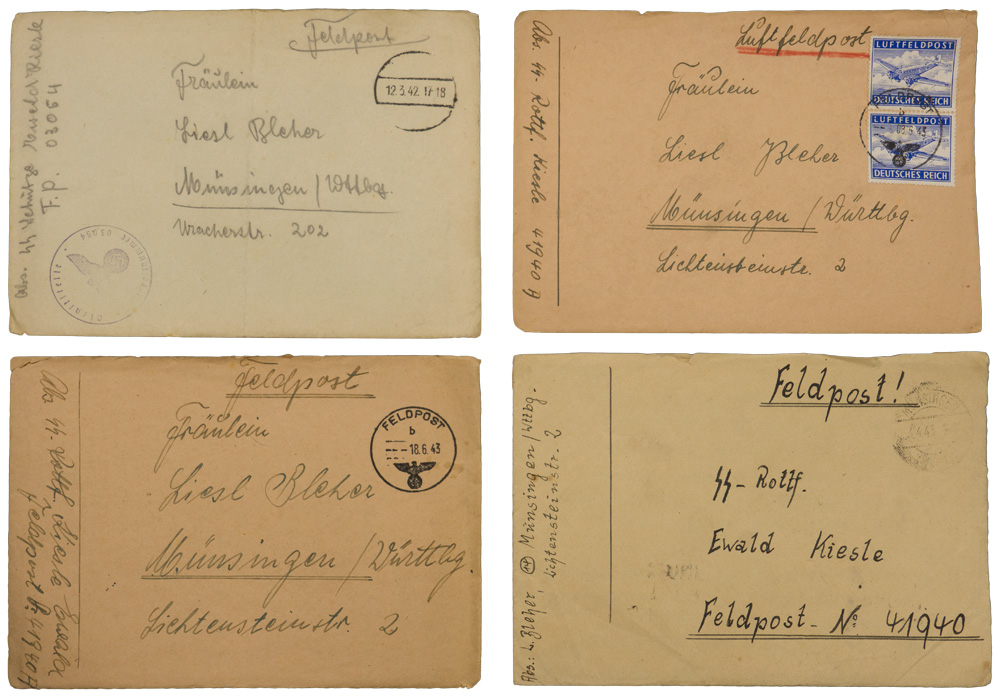 Feldpost
12.3.42. 17-18
Fräulein
Liesl Bleher
Münsingen/Wttbg.
Uracherstr. 202
Abs. SS Schütze Kiesle
F.P. 03054
Dienststelle Feldpostnummer 03054
Luftfeldpost
LUFTFELDPOST
DEUTSCHES REICH
LUFTFELDPOST
DEUTSCHES REICH
FELDPOST
b
Fräulein
Liesl Bleher
Münsingen/Württbg.
Lichtensteinstr. 2
Abs. SS. Rottf. Kiesle 41940 A
Feldpost
FELDPOST
b
18.6.43
Fräulein
Liesl Bleher
Münsingen/Württbg
Lichtensteinstr. 2
Abs SS. Rottf. Kiesle Ewald
Feldpost 41940 A
Feldpost!
SS-Rottf.
Ewald Kiesle
Feldpost-No 41940
Abs.: L. Bleher, (14) Münsingen/Wttbg.
Lichtensteinstr. 2